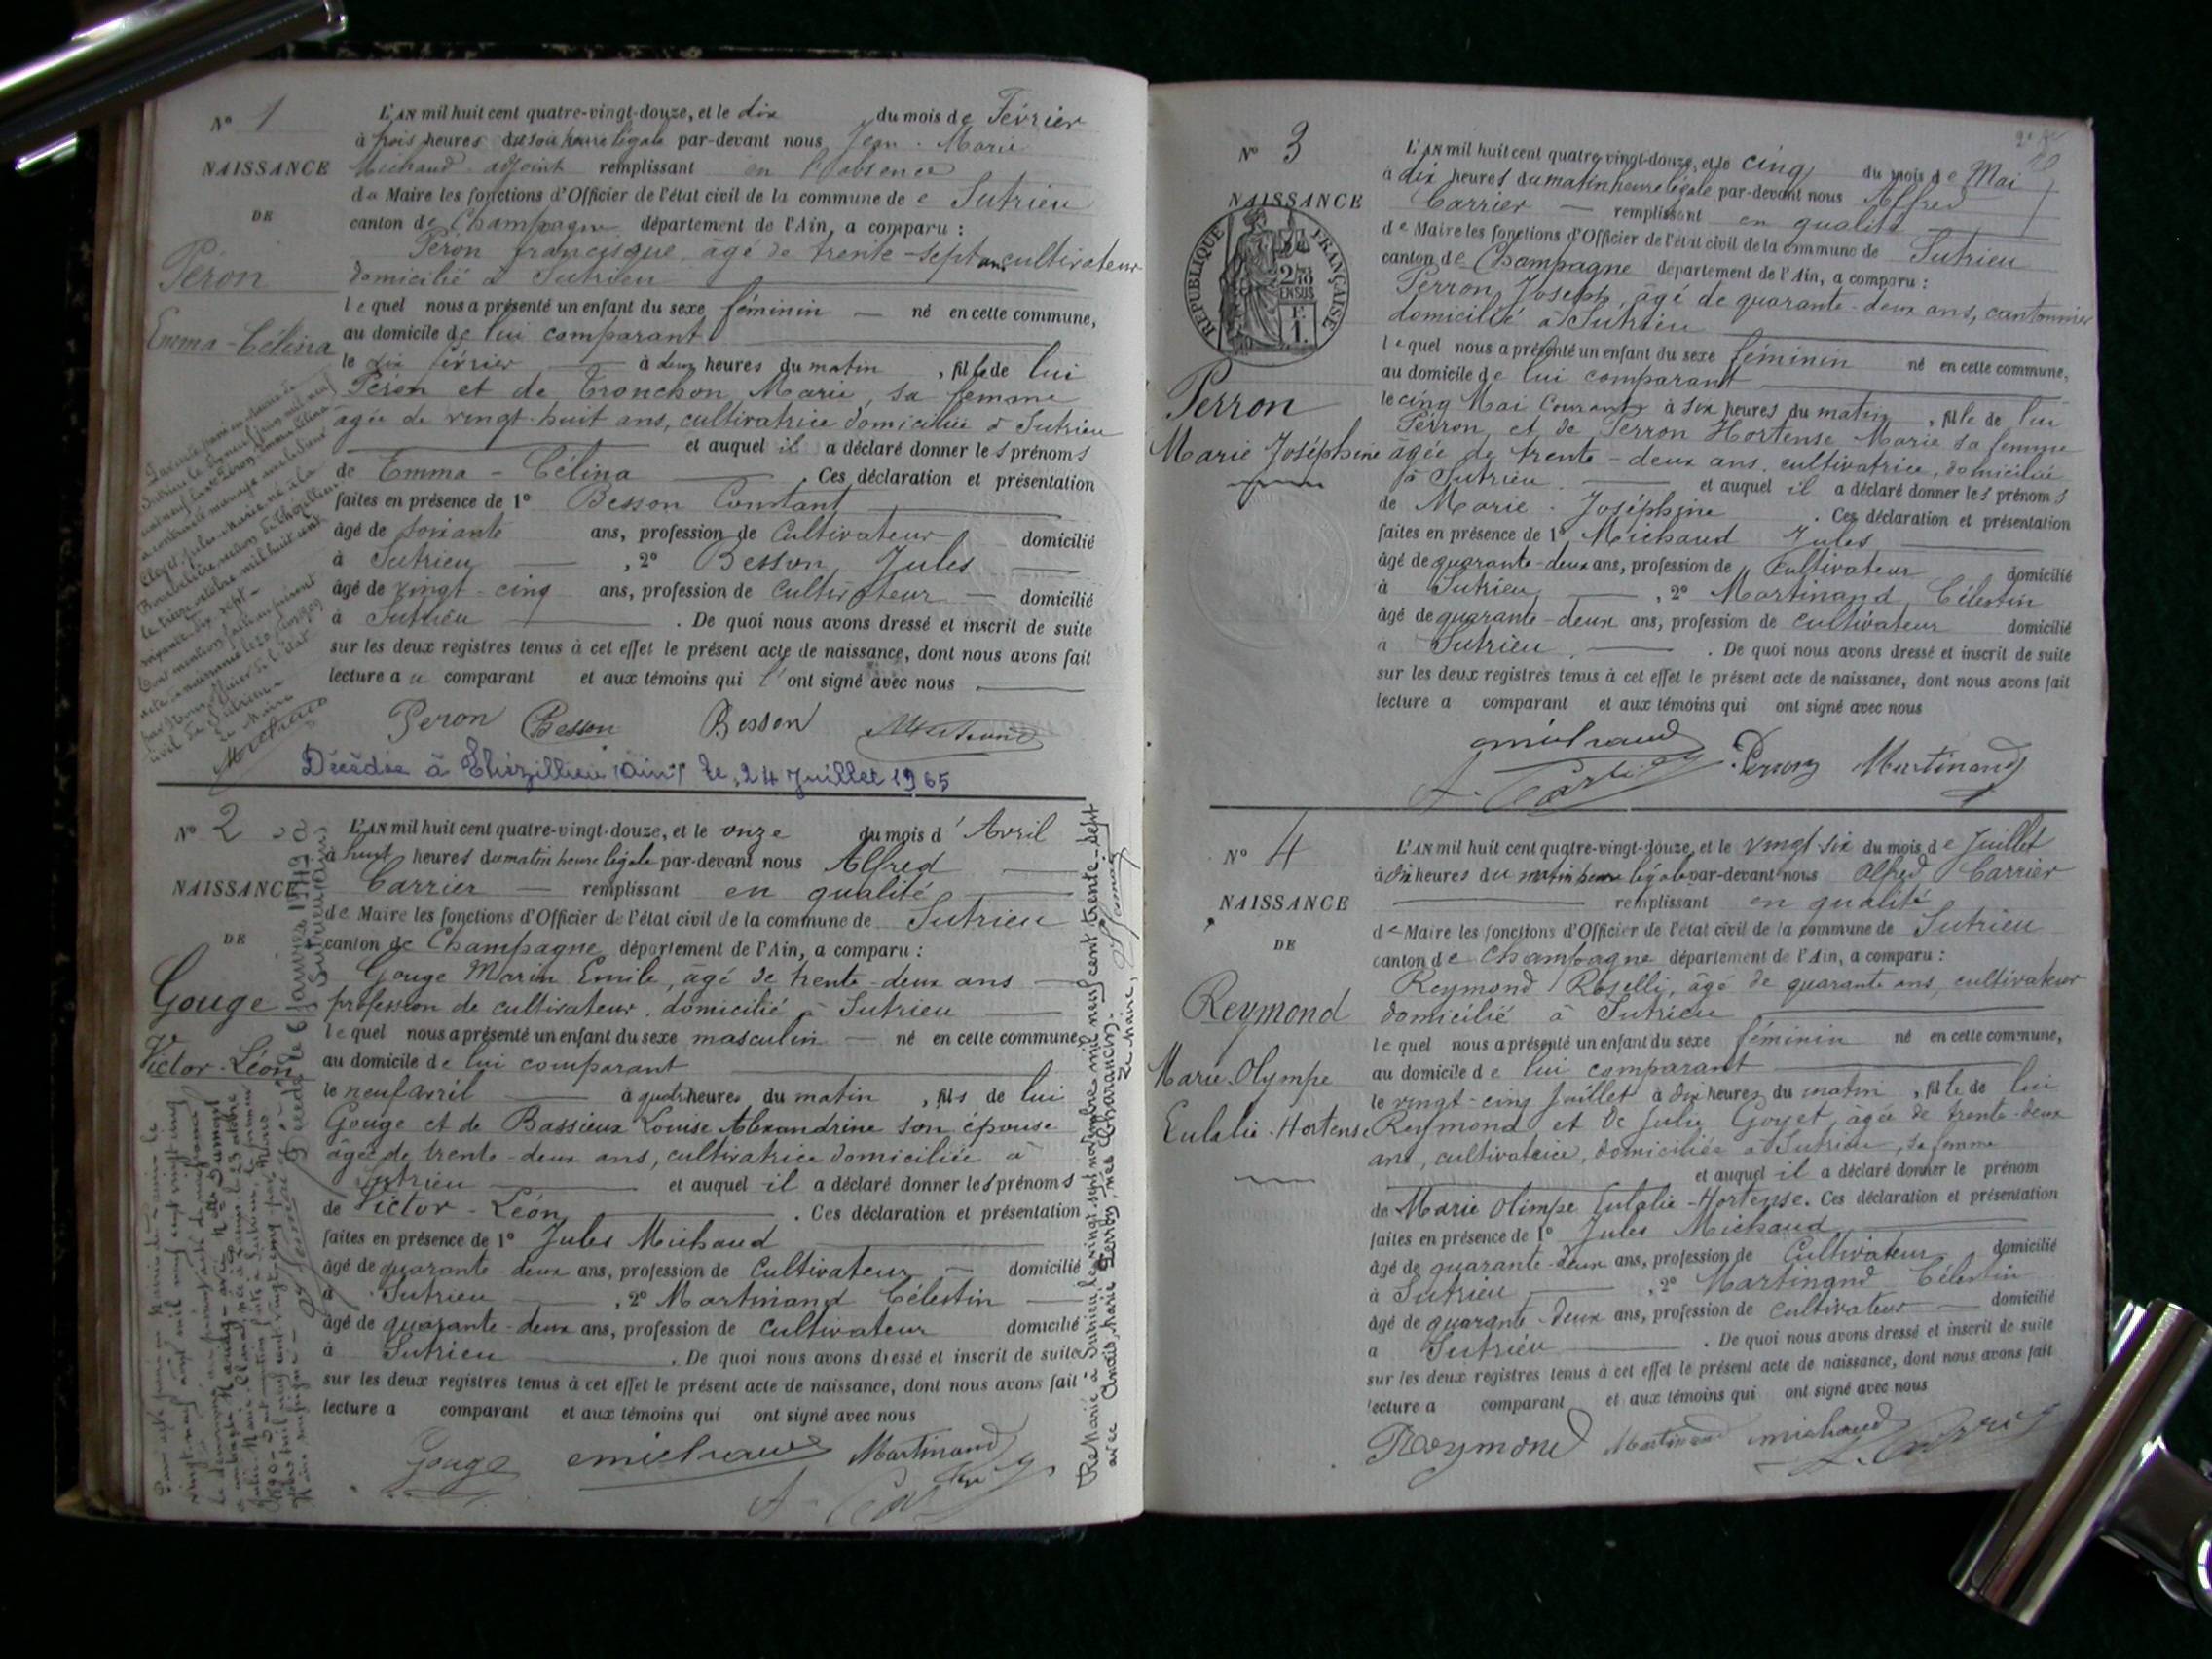 N° 1
NAISSANCE
DE
Péron
Emma-Célina
L'AN mil huit cent quatre-vingt-douze, et le dix du mois de Février
à trois heures du soir heure légale par-devant nous Jean-Marie
Michaud adjoint remplissant en l'absence
du Maire les fonctions d'Officier de l'état civil de la commune de Sutrieu
canton de Champagne département de l'Ain, a comparu :
Péron françisque âgé de trente-sept ans cultivateur
domicilié à Sutrieu
lequel nous a présenté un enfant du sexe féminin né en cette commune,
au domicile de lui comparant
le dix février à deux heures du matin, fille de lui
Péron et de Tronchon Marie, sa femme
âgée de vingt-huit ans, cultivatrice domiciliée à Sutrieu
et auquel il a déclaré donner les prénoms
de Emma-Célina. Ces déclaration et présentation
faites en présence de 1° Besson Constant
âgé de soixante ans, profession de Cultivateur domicilié
à Sutrieu, 2° Besson Jules
âgé de vingt-cinq ans, profession de Cultivateur domicilié
à Sutrieu. De quoi nous avons dressé et inscrit de suite
sur les deux registres tenus à cet effet le présent acte de naissance, dont nous avons fait
lecture au comparant et aux témoins qui l'ont signé avec nous
Peron Besson Besson Michaud
Décédée à Thézillieu (Ain) le 24 Juillet 1965
N° 2
NAISSANCE
DE
Gouge
Victor-Léon
L'AN mil huit cent quatre-vingt-douze, et le onze du mois d'Avril
à huit heures du matin heure légale par-devant nous Alfred
Carrier remplissant en qualité
de Maire les fonctions d'Officier de l'état civil de la commune de Sutrieu
canton de Champagne département de l'Ain, a comparu :
Gouge Marin Emile, âgé de trente-deux ans
profession de cultivateur, domicilié à Sutrieu
lequel nous a présenté un enfant du sexe masculin né en cette commune,
au domicile de lui comparant
le neuf avril à quatre heures du matin, fils de lui
Gouge et de Bassieux Louise Alexandrine son épouse
âgée de trente-deux ans, cultivatrice domiciliée à
Sutrieu et auquel il a déclaré donner les prénoms
de Victor-Léon. Ces déclaration et présentation
faites en présence de 1° Jules Michaud
âgé de quarante-deux ans, profession de Cultivateur domicilié
à Sutrieu, 2° Martinand Célestin
âgé de quarante-deux ans, profession de cultivateur domicilié
à Sutrieu. De quoi nous avons dressé et inscrit de suite
sur les deux registres tenus à cet effet le présent acte de naissance, dont nous avons fait
lecture a comparant et aux témoins qui ont signé avec nous
Gouge Michaud Martinand
Décédé le 6 Janvier 1949 à
Sutrieu (Ain)
ReMarié à Sutrieu le vingt sept novembre mil neuf cent trente sept
avec Anaïs, Marie Perron
Le Maire,
N° 3
NAISSANCE
RÉPUBLIQUE FRANÇAISE
Perron
Marie Joséphine
L'AN mil huit cent quatre-vingt-douze, et le cinq du mois de Mai
à dix heures du matin heure légale par-devant nous Alfred
Carrier remplissant en qualité
de Maire les fonctions d'Officier de l'état civil de la commune de Sutrieu
canton de Champagne département de l'Ain, a comparu :
Perron, Joseph, âgé de quarante-deux ans, cantonnier
domicilié à Sutrieu
lequel nous a présenté un enfant du sexe féminin né en cette commune,
au domicile de lui comparant
le cinq Mai Courant à six heures du matin, fille de lui
Perron et de Perron Hortense Marie sa femme
âgée de trente-deux ans, cultivatrice, domiciliée
à Sutrieu. et auquel il a déclaré donner les prénoms
de Marie-Joséphine. Ces déclaration et présentation
faites en présence de 1° Michaud Jules
âgé de quarante-deux ans, profession de Cultivateur domicilié
à Sutrieu, 2° Martinand Célestin
âgé de quarante-deux ans, profession de cultivateur domicilié
à Sutrieu. De quoi nous avons dressé et inscrit de suite
sur les deux registres tenus à cet effet le présent acte de naissance, dont nous avons fait
lecture a comparant et aux témoins qui ont signé avec nous
Michaud Perron Martinand
N° 4
NAISSANCE
DE
Reymond
Marie-Olympe
Eulalie-Hortense
L'AN mil huit cent quatre-vingt-douze, et le vingt six du mois de Juillet
à dix heures du matin heure légale par-devant nous Alfred Carrier
remplissant en qualité
de Maire les fonctions d'Officier de l'état civil de la commune de Sutrieu
canton de Champagne département de l'Ain, a comparu :
Reymond Roselli, âgé de quarante ans, cultivateur
domicilié à Sutrieu
lequel nous a présenté un enfant du sexe féminin né en cette commune,
au domicile de lui comparant
le vingt-cinq Juillet à dix heures du matin, fille de lui
Reymond et de Julie Goyet, âgée de trente-deux
ans, cultivatrice, domiciliée à Sutrieu, sa femme
et auquel il a déclaré donner le prénom
de Marie Olimpe Eulalie-Hortense. Ces déclaration et présentation
faites en présence de 1° Jules Michaud
âgé de quarante-deux ans, profession de Cultivateur domicilié
à Sutrieu, 2° Martinand Célestin
âgé de quarante-deux ans, profession de cultivateur domicilié
a Sutrieu. De quoi nous avons dressé et inscrit de suite
sur les deux registres tenus à cet effet le présent acte de naissance, dont nous avons fait
lecture a comparant et aux témoins qui ont signé avec nous
Reymond Martinand Michaud